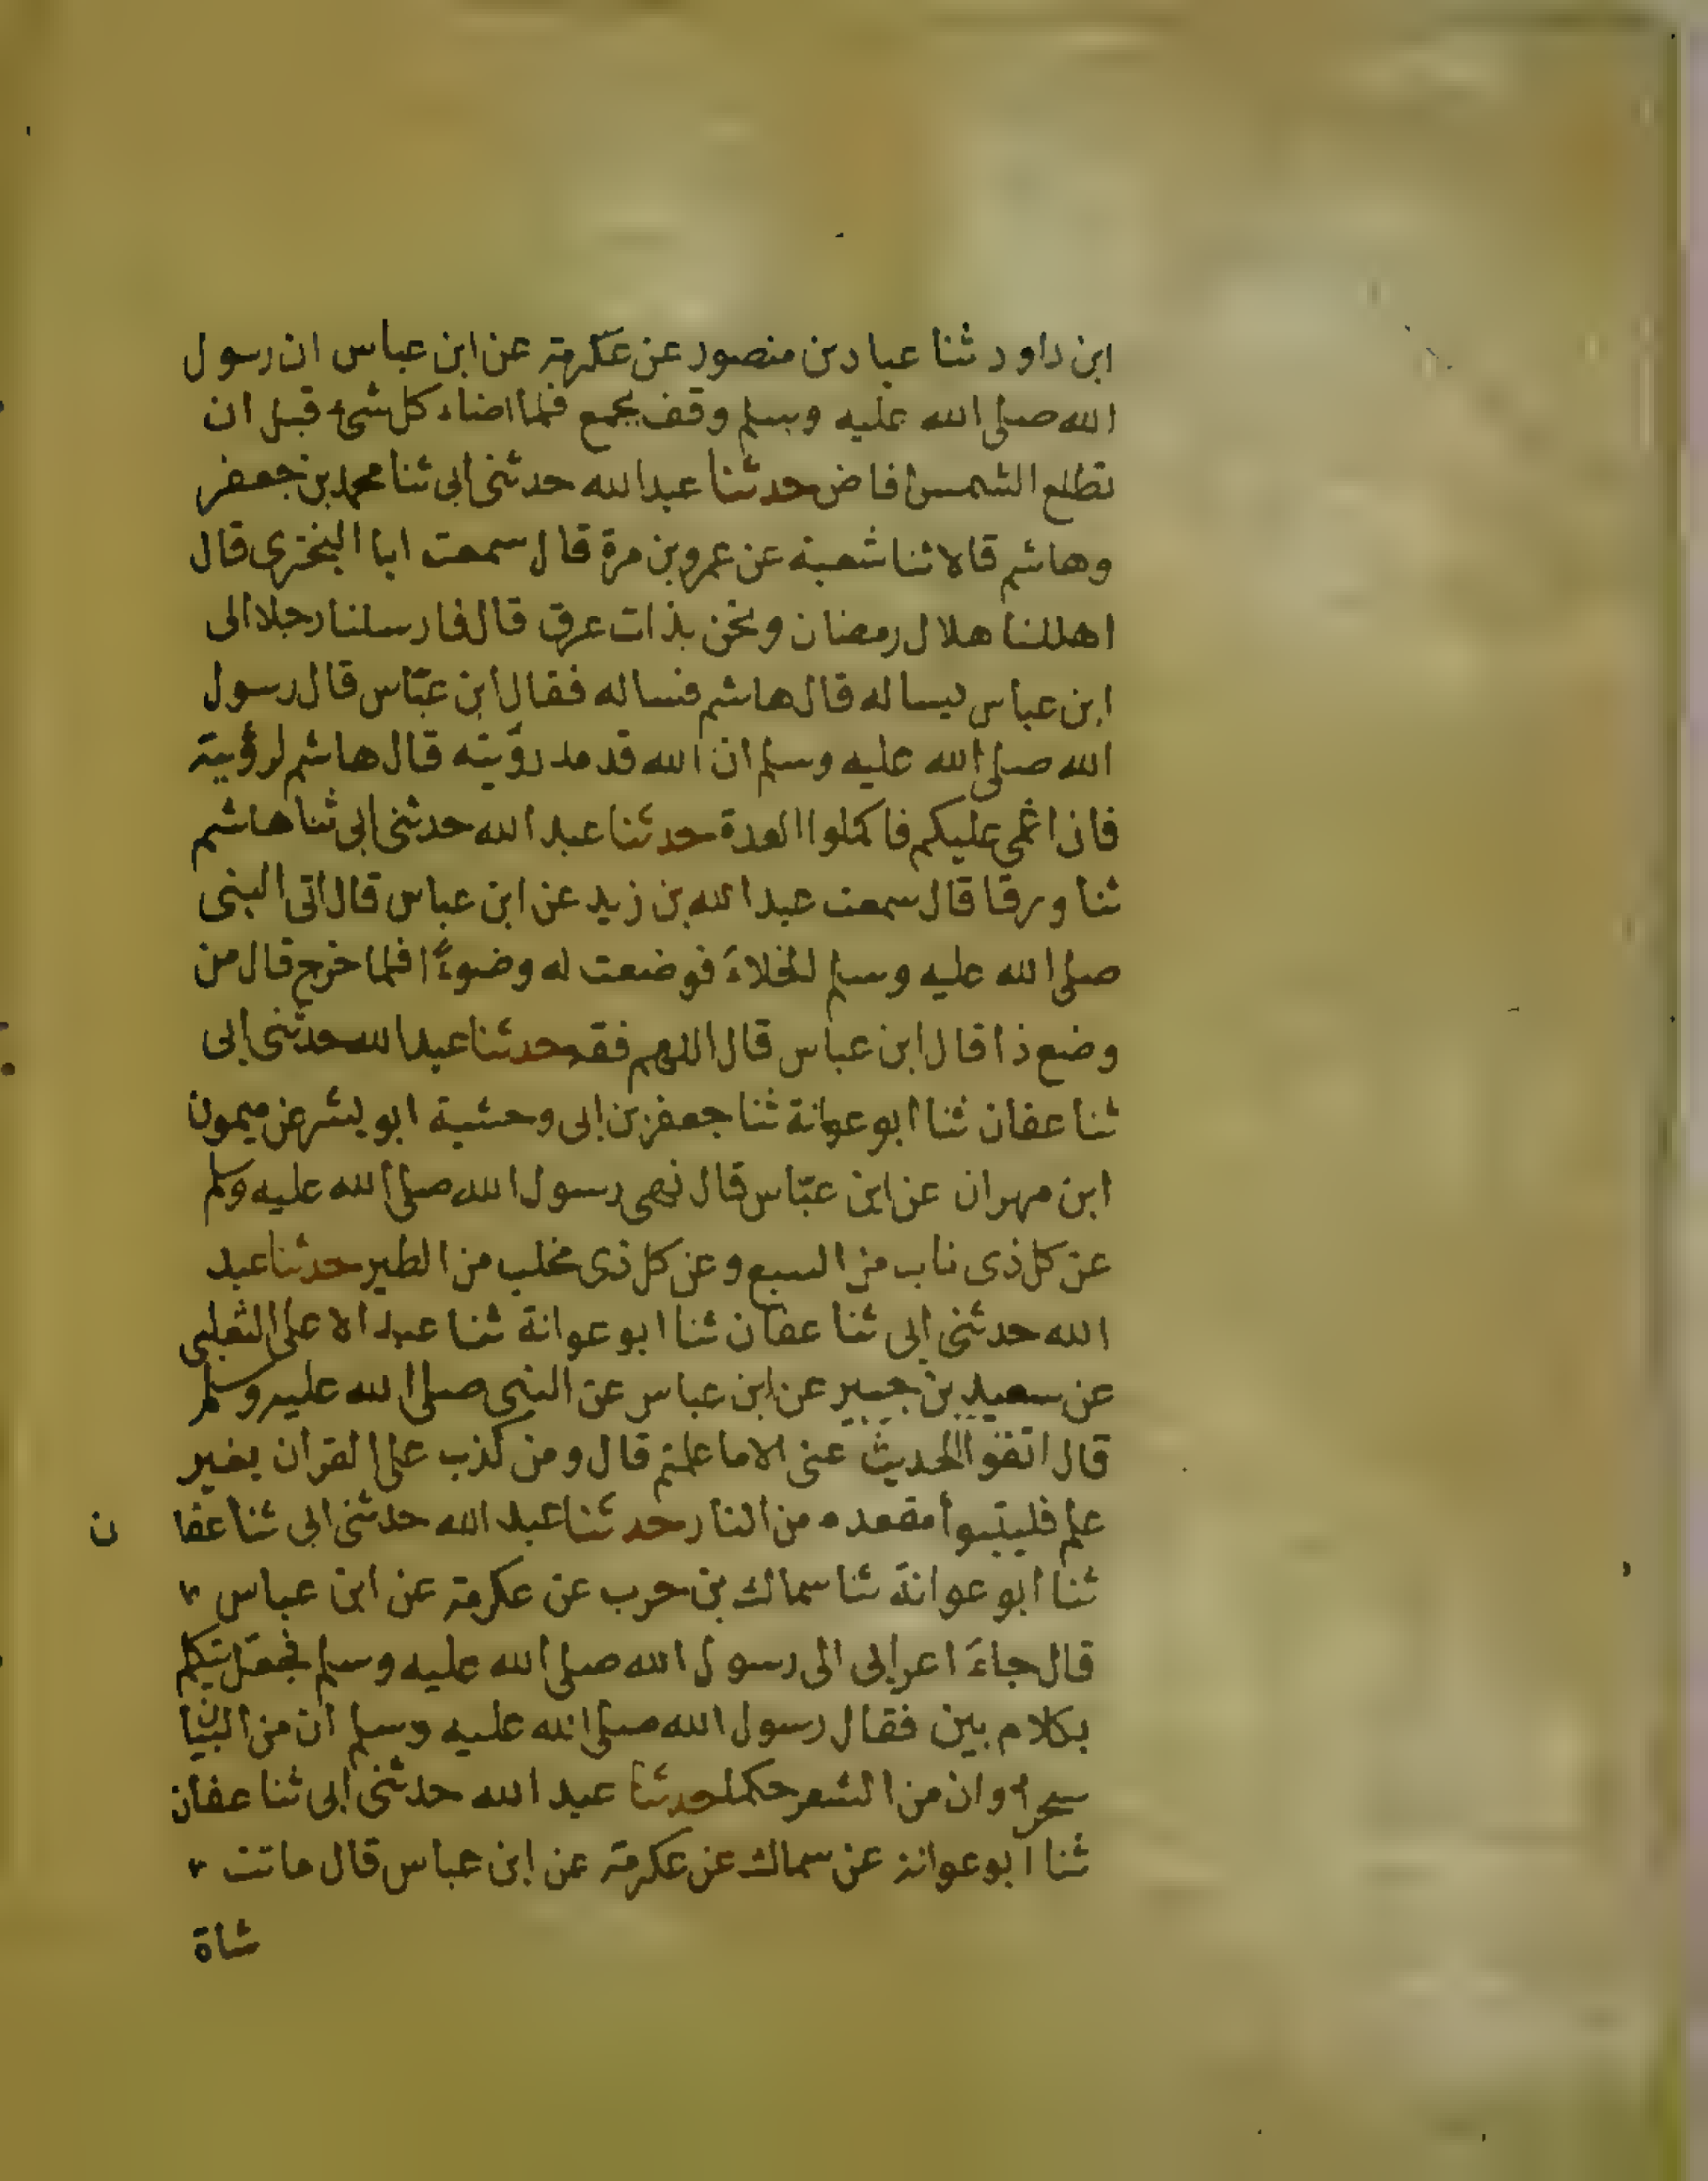 ابن داود ثنا عباد بن منصور عن عكرمة عن ابن عباس ان رسول
الله صلى الله عليه وسلم وقف بجمع فلما اضاء كل شئ قبل ان
تطلع الشمس افاض حدثنا عبد الله حدثنى ابى ثنا محمد بن جعفر
وهاشم قالا ثنا شعبة عن عمرو بن مرة قال سمعت ابا البخترى قال
اهللنا هلال رمضان ونحن بذات عرق قال فارسلنا رجلا الى
ابن عباس يساله قال هاشم فساله فقال ابن عبّاس قال رسول
الله صلى الله عليه وسلم ان الله قد مد رؤيته قال هاشم لرؤيته
فان اغمى عليكم فاكملوا العدة حدثنا عبد الله حدثنى ابى ثنا هاشم
ثنا ورقا قال سمعت عبد الله بن زيد عن ابن عباس قال اتى النبى
صلى الله عليه وسلم الخلاءَ فوضعت له وضوءًا فلما خرج قال من
وضع ذا قال ابن عباس قال اللهم فقهه حدثنا عبد الله حدثنى ابى
ثنا عفان ثنا ابو عوانة ثنا جعفر بن ابى وحشية ابو بشر عن ميمون
ابن مهران عن ابن عبّاس قال نهى رسول الله صلى الله عليه وسلم
عن كل ذى ناب من السبع وعن كل ذى مخلب من الطير حدثنا عبد
الله حدثنى ابى ثنا عفان ثنا ابو عوانة ثنا عبد الاعلى الثعلبى
عن سعيد بن جبير عن ابن عباس عن النبى صلى الله عليه وسلم
قال اتقوا الحديث عنى الا ما علمتم قال ومن كذب على القران بغير
علم فليتبوأ مقعده من النار حدثنا عبد الله حدثنى ابى ثنا عفا ن
ثنا ابو عوانة ثنا سماك بن حرب عن عكرمة عن ابن عباس
قال جاءَ اعرابى الى رسول الله صلى الله عليه وسلم فجعل يتكلم
بكلام بين فقال رسول الله صلى الله عليه وسلم ان من البيان
سحرا وان من الشعر حكما حدثنا عبد الله حدثنى ابى ثنا عفان
ثنا ابو عوانة عن سماك عن عكرمة عن ابن عباس قال ماتت
شاة